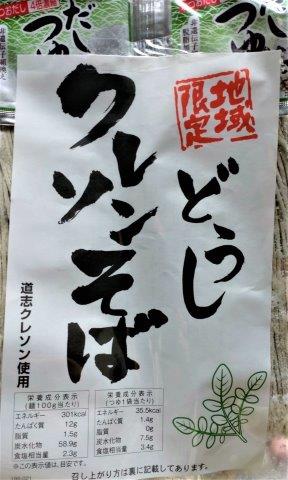 つおだし 4倍濃縮
だし
つゆ
だし
つゆ
地域
限定
どうし
クレソンそば
道志クレソン使用
栄養成分表示
(麺100g当たり)
エネルギー 301kcal
たんぱく質 12g
脂質 1.5g
炭水化物 58.9g
食塩相当量 2.3g
栄養成分表示
(つゆ1袋当たり)
エネルギー 35.5kcal
たんぱく質 1.4g
脂質 0g
炭水化物 7.5g
食塩相当量 3.4g
※この表示値は、目安です。
召し上がり方は裏に記載してあります。